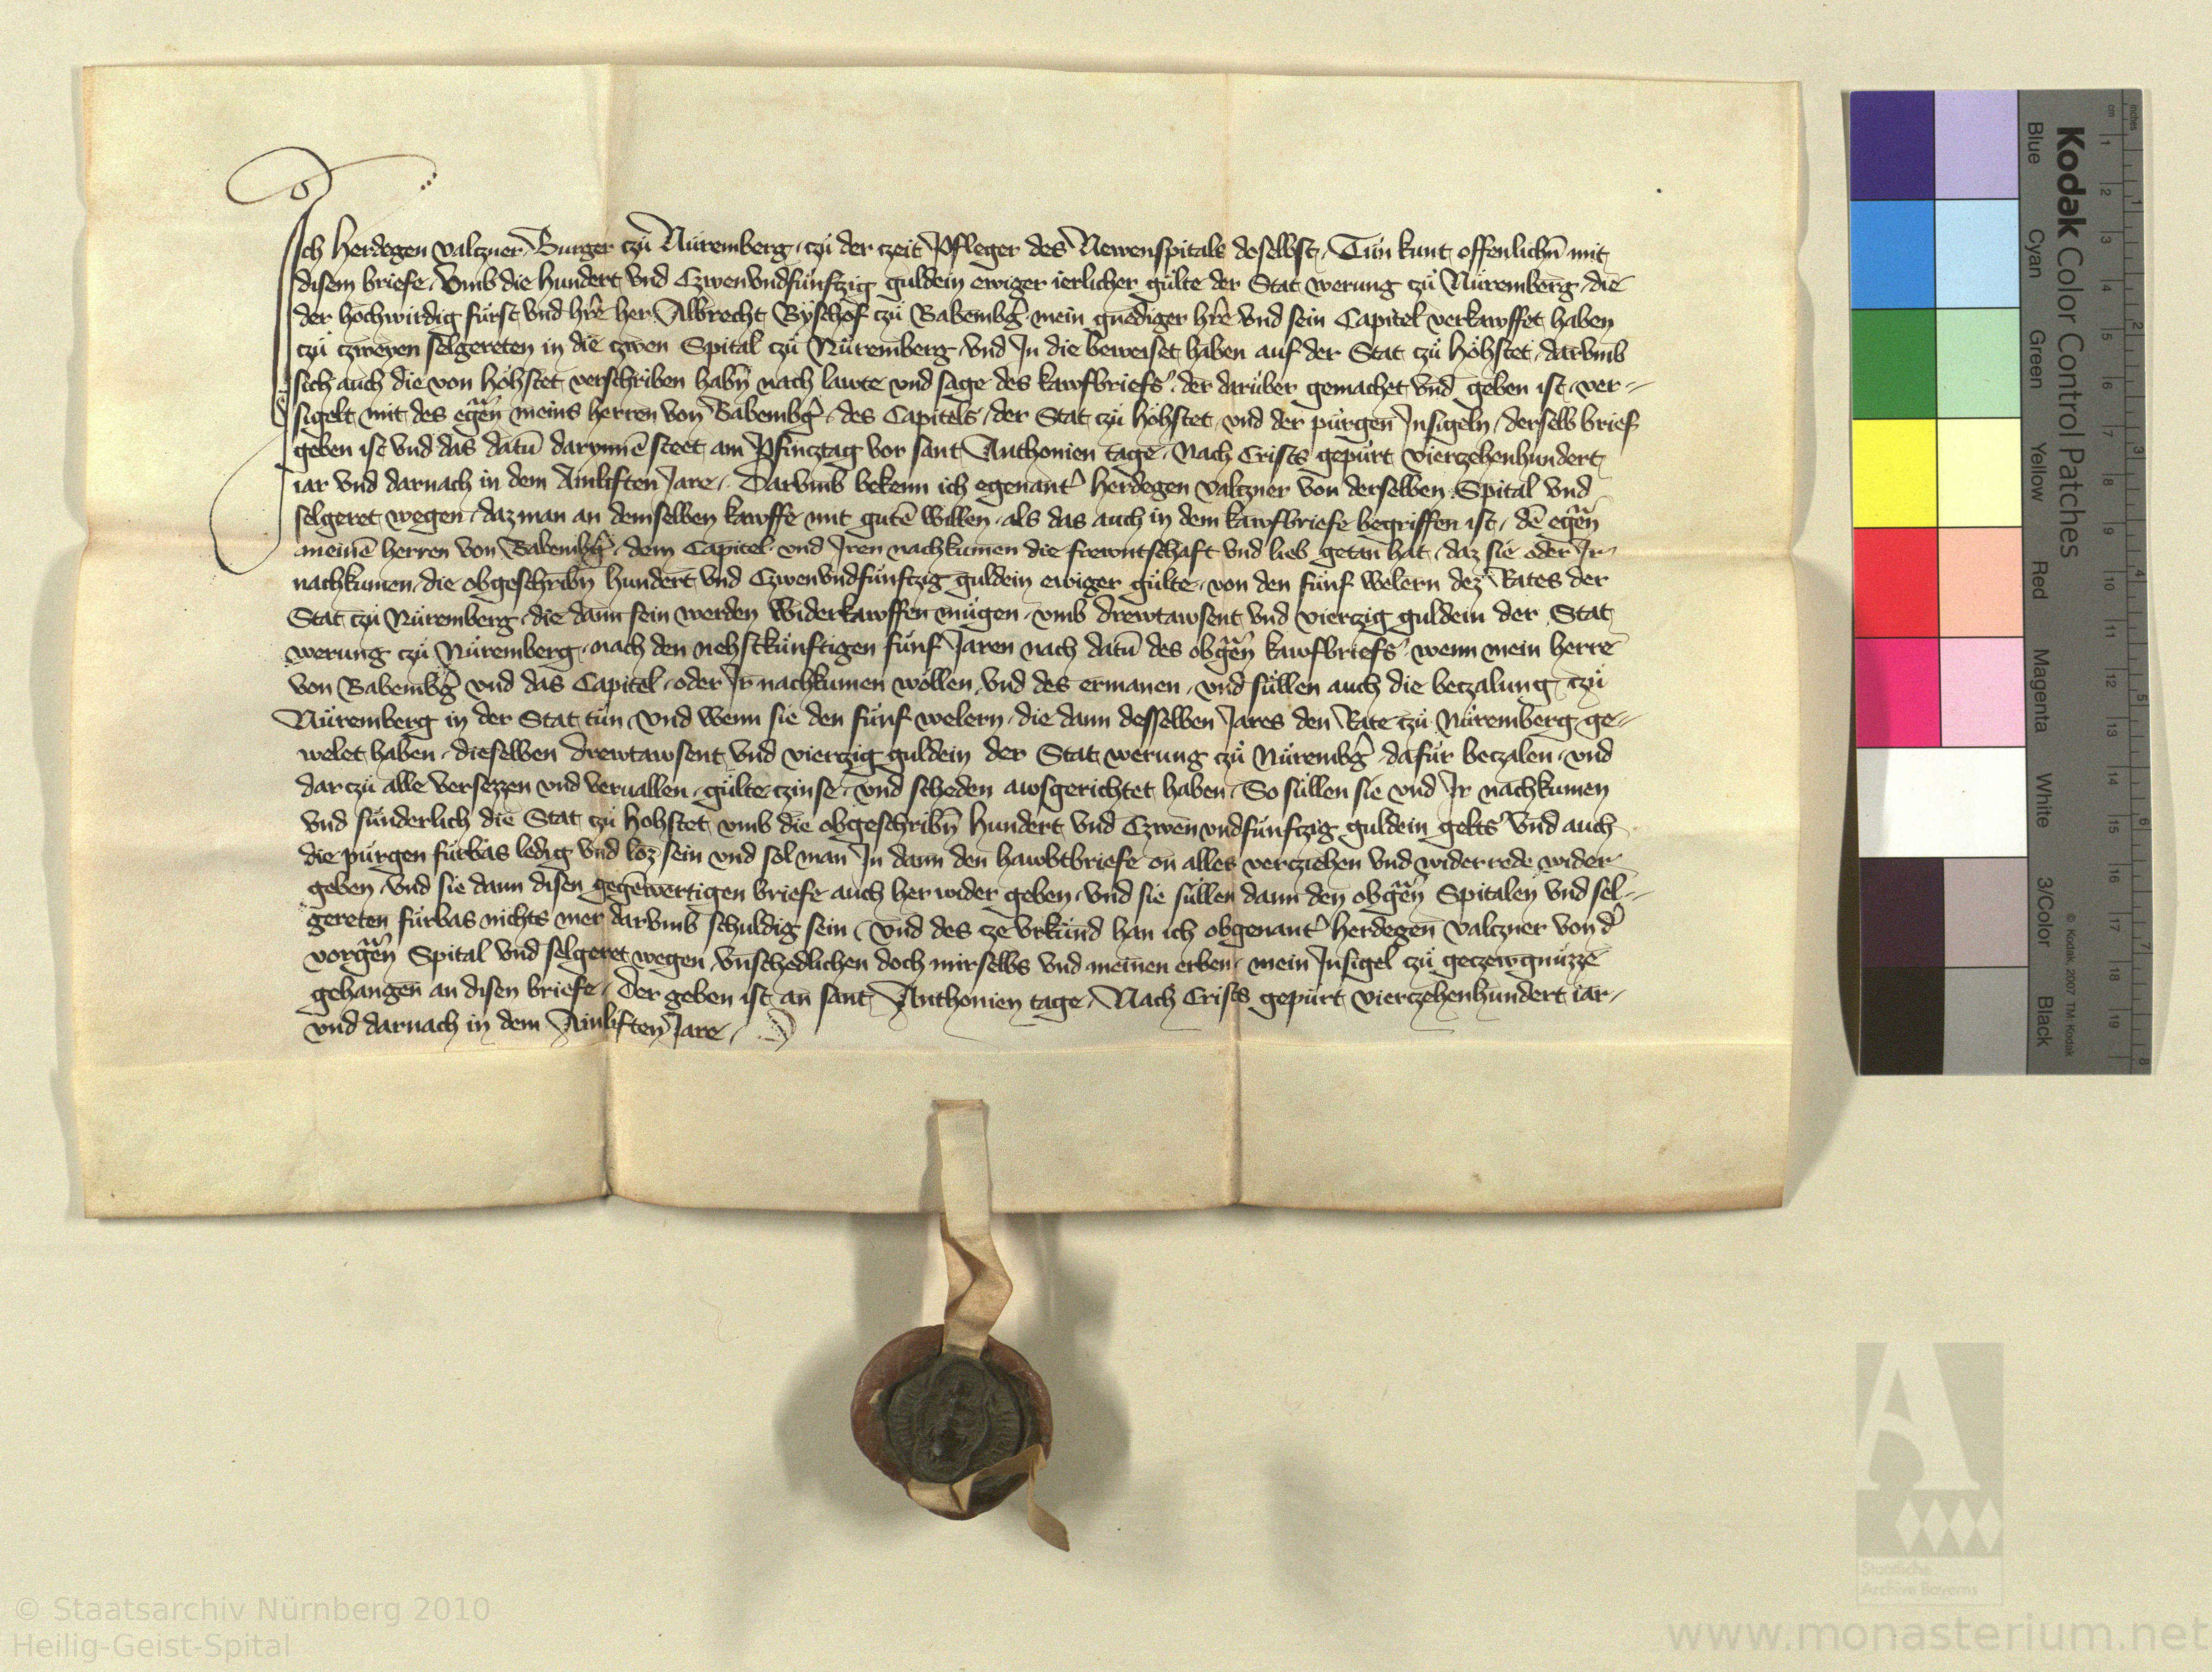 Ich Herdegen Valczner Burger czů Nůremberg, czů der czeit Pfleger des Newenspitals doselbst, Tůn kunt offenlichn̄ mit
disem briefe, Vmb die hundert vnd Czwenvndfůnftzig guldein ewiger ierlicher gůlte der Stat werung czů Nůremberg, die
der hochwirdig fůrst vnd hr̄e her Albrecht Byschof czů Babembg̉ mein gnediger hr̄e vnd sein Capitel verkawffet haben
czů czweyen selgereten in die czwen Spital czů Nůremberg, vnd In die beweiset haben auf der Stat czů Höhstet, darvmb
sich auch die von Höhstet verschriben habn̄ nach lawte vnd sage des kawfbriefs, der darůber gemachet vnd geben ist, ver=
sigelt mit des egen̄ meins herren von Babembg̉, des Capitels, der Stat czů Höhstet, vnd der pürgen Insigeln, derselb brief
geben ist vnd das datū darynnē steet am Pfincztag vor sant Anthonien tage, Nach Crists gepůrt vierczehenhundert
iar vnd darnach in dem Ainliften Jare, Darvmb bekenn ich egenant̉ Herdegen Valczner von derselben Spital vnd
selgeret wegen, daz man an demselben kawffe mit gutē willen, als das auch in dem kawfbriefe begriffen ist, dē egen̄
meinē herren von Babembg̉, dem Capitel vnd Iren nachkumen die frewntschaft vnd lieb getan hat, daz sie oder Ir
nachkumen, die obgeschribn̄ hundert vnd Czwenvndfůnftzig guldein ewiger gůlte, von den fůnf welern dez Rates der
Stat czů Nůremberg, die dann sein werden widerkawffen mügen, vmb drewtawsent vnd vierczig guldein der Stat
werung czů Nůremberg, nach den nehstkůnftigen fůnf Jaren nach datū des obgen̄ kawfbriefs, wenn mein herre
von Babembg̉ vnd das Capitel, oder Ir nachkumen wöllen, vnd des ermanen, vnd süllen auch die beczalung czů
Nůremberg in der Stat tůn, vnd wenn sie den fůnf welern, die dann desselben Jares den Rate czů Nůremberg ge=
welet haben, dieselben drewtawsent vnd vierczig guldein der Stat werung czů Nůrembg̉ dafůr beczalen, vnd
dar czů alle versezzen vnd veruallen, gůlte czinse, vnd scheden awsgerichtet haben, So süllen sie vnd Ir nachkumen
vnd sünderlich die Stat czů Hohstet vmb die obgeschribn̄ hundert vnd Czwenvndfůnftzig guldein gelts vnd auch
die pürgen fürbas ledig vnd loz sein vnd sol man In dann den hawbtbriefe on alles vercziehen vnd widerrede wider
geben, vnd sie dann disen gegēwertigen briefe auch her wider geben, vnd sie süllen dann den obgen̄ Spitalen vnd sel=
gereten fürbas nichts mer darvmb schuldig sein, vnd des cze vrkůnd han ich obgenant̉ Herdegen Valczner von d̉
vorgen̄ Spital vnd selgeret wegen, vnschedlichen doch mir selbs vnd meinen erben, mein Insigel czů geczewgnůzze
gehangen an disen briefe, Der geben ist an sant Anthonien tage, Nach Crists gepůrt vierczehenhundert iar,
vnd darnach in dem Ainliften Jare,
Kodak Color Control Patches
Blue Cyan Green Yellow Red Magenta White 3/Color Black
© Kodak 2007 TM: Kodak
cm 1 2 3 4 5 6 7 8 9 10 11 12 13 14 15 16 17 18 19
inches 1 2 3 4 5 6 7 8
Staatliche
Archive Bayerns
© Staatsarchiv Nürnberg 2010
Heilig-Geist-Spital
www.monasterium.net